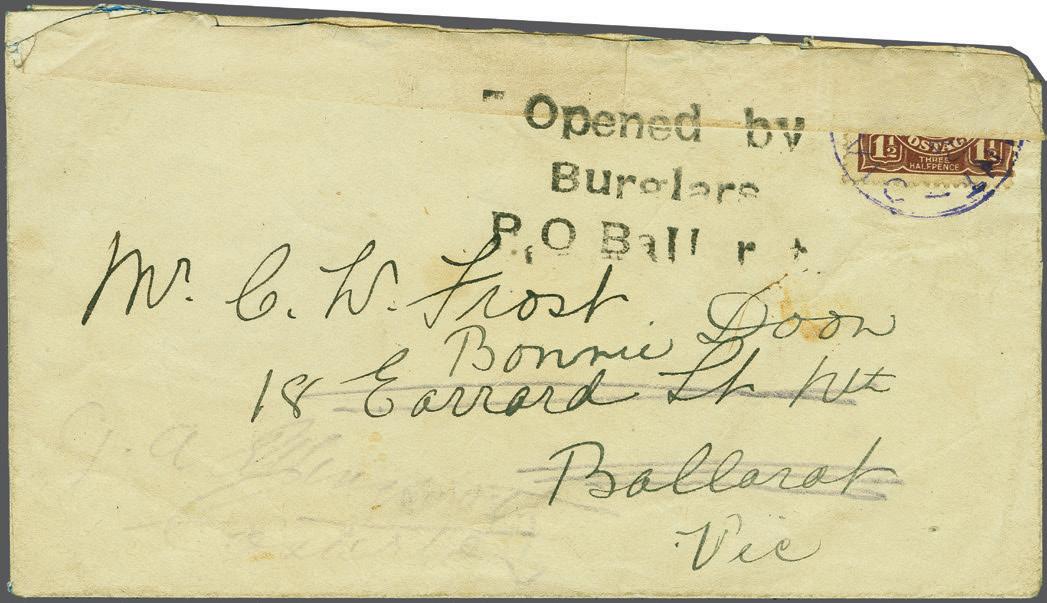 Opened by
Burglars
P.O Ballarat
1½ POSTAGE 1½
THREE
HALFPENCE
Mr. C. W. Frost.
Bonnie Doon
18 Earrard St Nth
Ballarat
Vic